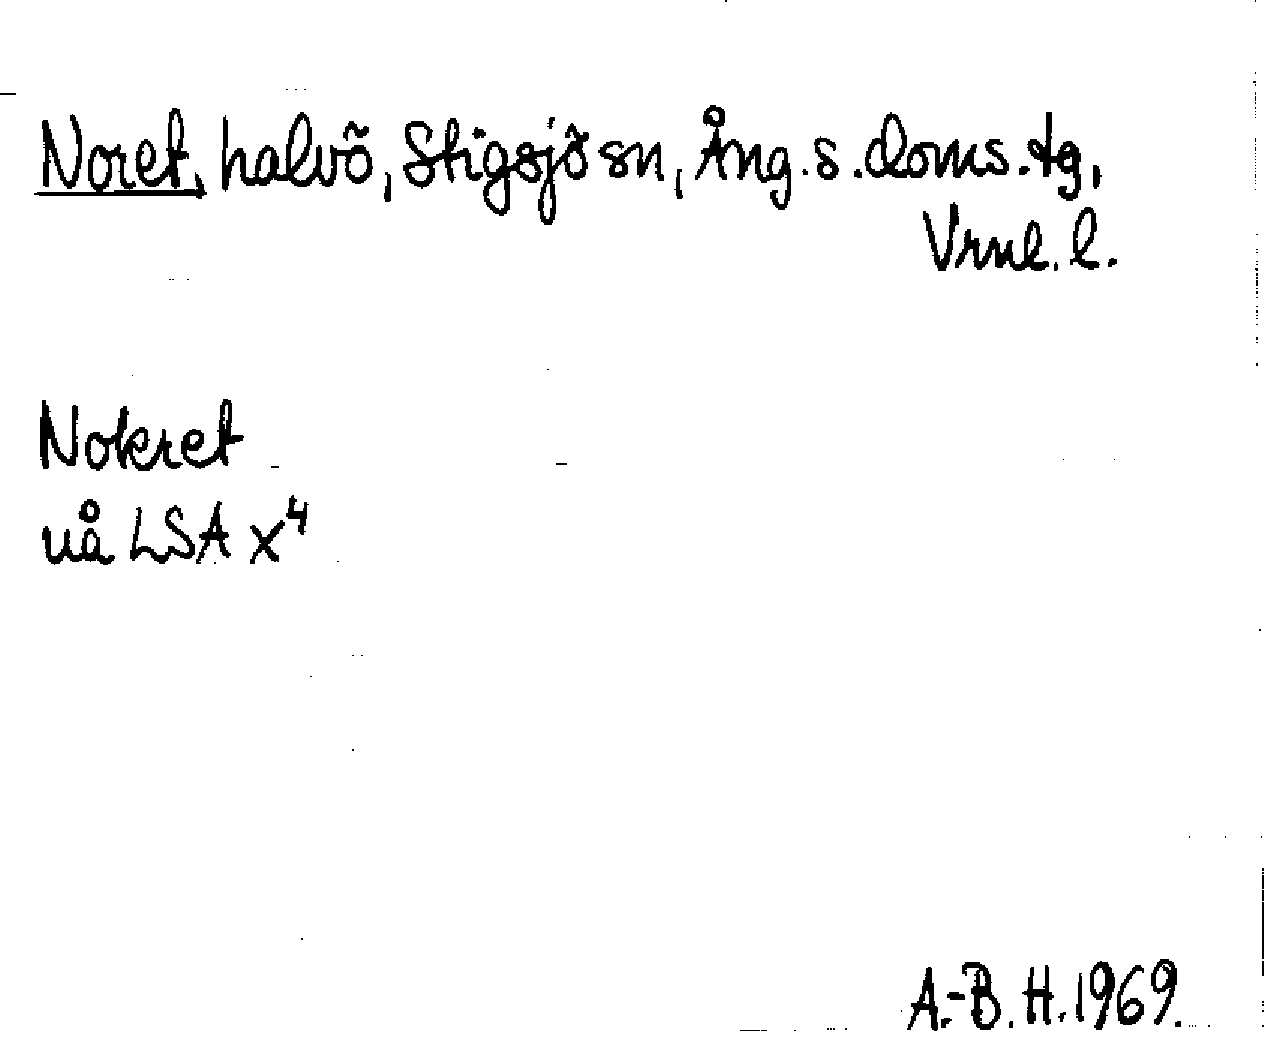 Noret, halvö, Stigsjö sn, Ång. s. doms. tg,
Vrnl. l.
Nokret
uå LSA x⁴
A.-B. H. 1969.